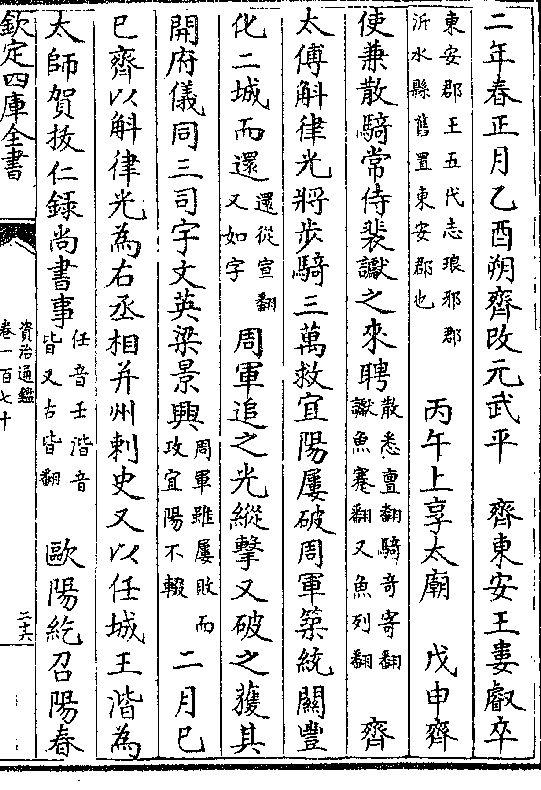 二年春正月乙酉朔齊改元武平　齊東安王婁叡卒
東安郡王五代志琅邪郡
沂水縣舊置東安郡也
丙午上享太廟　戊申齊
使兼散騎常侍裴讞之來聘
散悉亶翻騎奇寄翻
讞魚蹇翻又魚列翻
齊
太傅斛律光將步騎三萬救宜陽屢破周軍築統關豐
化二城而還
還從宣翻
又如字
周軍追之光縱擊又破之獲其
開府儀同三司宇文英梁景興
周軍雖屢敗而
攻宜陽不輟
二月己
巳齊以斛律光為右丞相并州刺史又以任城王湝為
太師賀拔仁錄尚書事
任音壬湝音
皆又古皆翻
歐陽紇召陽春
欽定四庫全書
資治通鑑
卷一百七十
二十六